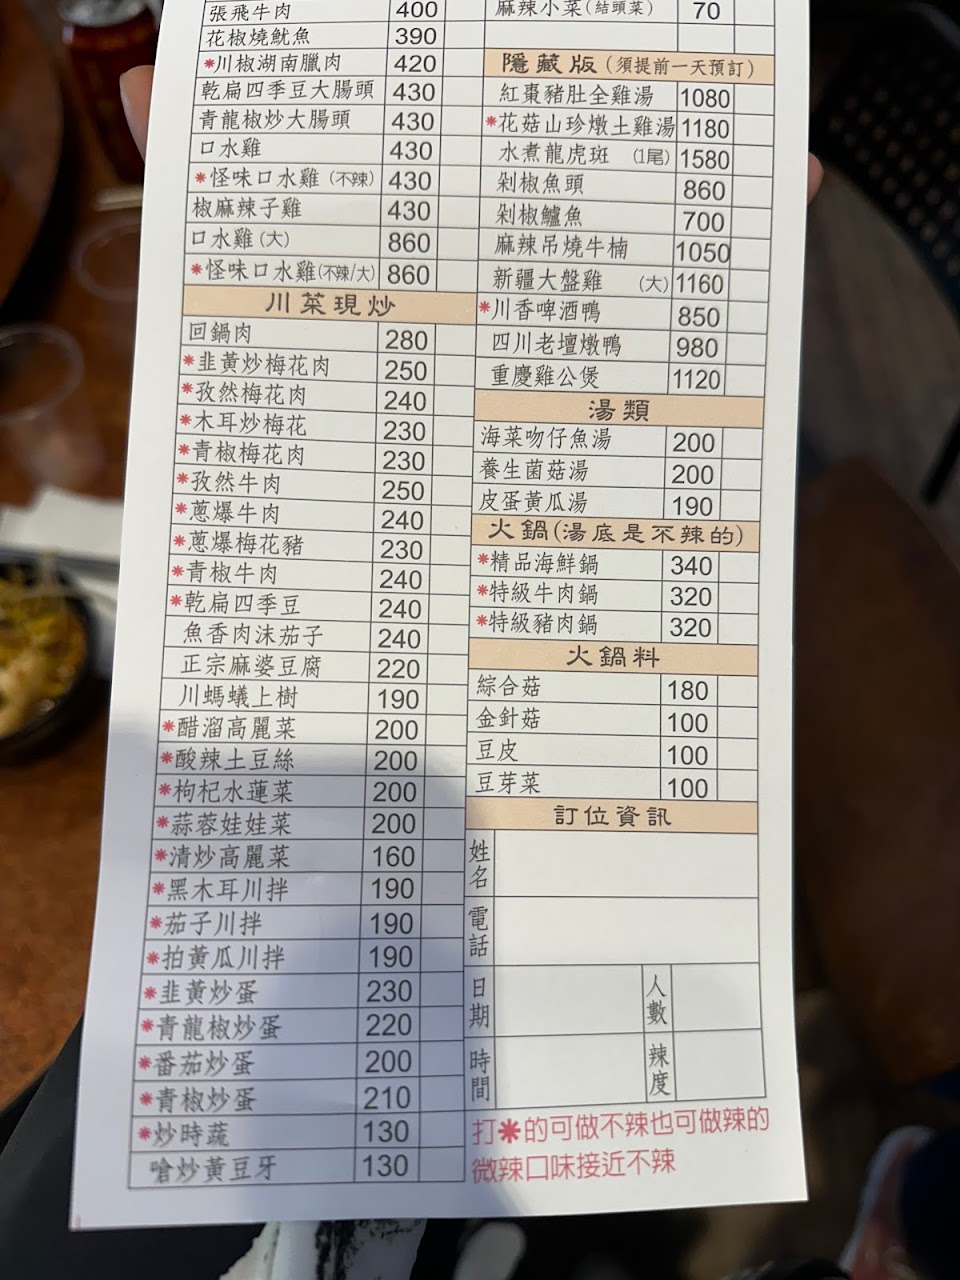 張飛牛肉 400
花椒燒魷魚 390
*川椒湖南臘肉 420
乾扁四季豆大腸頭 430
青龍椒炒大腸頭 430
口水雞 430
*怪味口水雞(不辣) 430
椒麻辣子雞 430
口水雞(大) 860
*怪味口水雞(不辣/大) 860
川菜現炒
回鍋肉 280
*韭黃炒梅花肉 250
*孜然梅花肉 240
*木耳炒梅花 230
*青椒梅花肉 230
*孜然牛肉 250
*蔥爆牛肉 240
*蔥爆梅花豬 230
*青椒牛肉 240
*乾扁四季豆 240
魚香肉沫茄子 240
正宗麻婆豆腐 220
川螞蟻上樹 190
*醋溜高麗菜 200
*酸辣土豆絲 200
*枸杞水蓮菜 200
*蒜蓉娃娃菜 200
*清炒高麗菜 160
*黑木耳川拌 190
*茄子川拌 190
*拍黃瓜川拌 190
*韭黃炒蛋 230
*青龍椒炒蛋 220
*番茄炒蛋 200
*青椒炒蛋 210
*炒時蔬 130
嗆炒黃豆牙 130
麻辣小菜(結頭菜) 70
隱藏版(須提前一天預訂)
紅棗豬肚全雞湯 1080
*花菇山珍燉土雞湯 1180
水煮龍虎斑 (1尾) 1580
剁椒魚頭 860
剁椒鱸魚 700
麻辣吊燒牛楠 1050
新疆大盤雞 (大) 1160
*川香啤酒鴨 850
四川老壇燉鴨 980
重慶雞公煲 1120
湯類
海菜吻仔魚湯 200
養生菌菇湯 200
皮蛋黃瓜湯 190
火鍋(湯底是不辣的)
*精品海鮮鍋 340
*特級牛肉鍋 320
*特級豬肉鍋 320
火鍋料
綜合菇 180
金針菇 100
豆皮 100
豆芽菜 100
訂位資訊
姓名
電話
日期 人數
時間 辣度
打*的可做不辣也可做辣的
微辣口味接近不辣